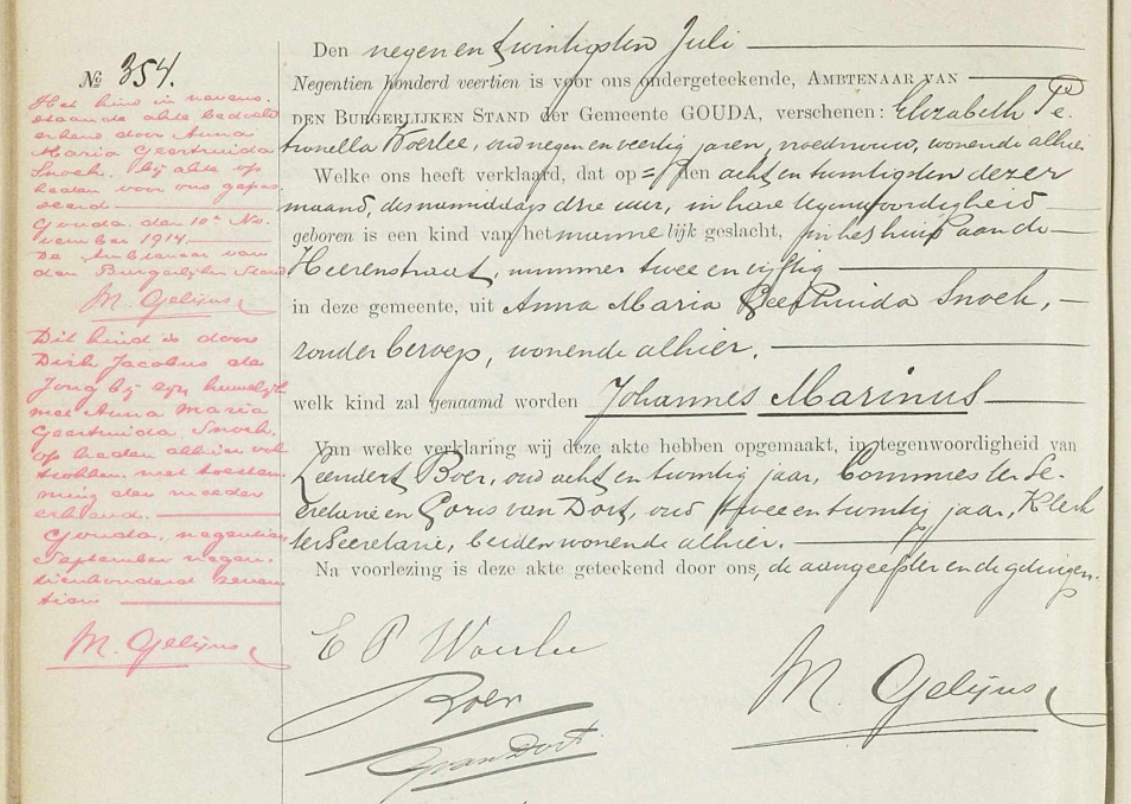 № 354.
Het kind in nevens-
staande akte bedoeld
erkend door Anna
Maria Geertruida
Snoek, bij akte op
heden voor ons gepas
seerd
Gouda, den 10e No-
vember 1914.
De Ambtenaar van
den Burgerlijken Stand
M. Gelijns
Dit kind is door
Dirk Jacobus de
Jong bij zijn huwelijk
met Anna Maria
Geertruida Snoek,
op heden alhier vol
trokken, met toestem-
ming der moeder
erkend.
Gouda, negentien
September negen-
tienhonderd zeven
tien
M. Gelijns
Den negen en twintigsten Juli
Negentien honderd veertien is voor ons ondergeteekende, AMBTENAAR VAN
DEN BURGERLIJKEN STAND der Gemeente GOUDA, verschenen: Elizabeth Pe-
tronella Woerlee, oud negen en veertig jaren, vroedvrouw, wonende alhier
Welke ons heeft verklaard, dat op = den acht en twintigsten dezer
maand, des namiddags drie uur, in hare tegenwoordigheid
geboren is een kind van het mannelijk geslacht, in het huis aan de
Heerenstraat, nummer twee en vijftig
in deze gemeente, uit Anna Maria Geertruida Snoek,
zonder beroep, wonende alhier.
welk kind zal genaamd worden Johannes Marinus
Van welke verklaring wij deze akte hebben opgemaakt, in tegenwoordigheid van
Leendert Boer, oud acht en twintig jaar, Commies ter Se-
cretarie en Goris van Dort, oud twee en twintig jaar, Klerk
ter Secretarie, beiden wonende alhier.
Na voorlezing is deze akte geteekend door ons, de aangeefster en de getuigen.
E P Woerlee
Boer
GvanDort
M. Gelijns